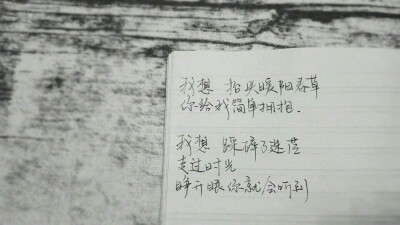 我想 抬头暖阳春草
你给我简单拥抱.
我想 踩碎了迷茫
走过时光
睁开眼你就会听到